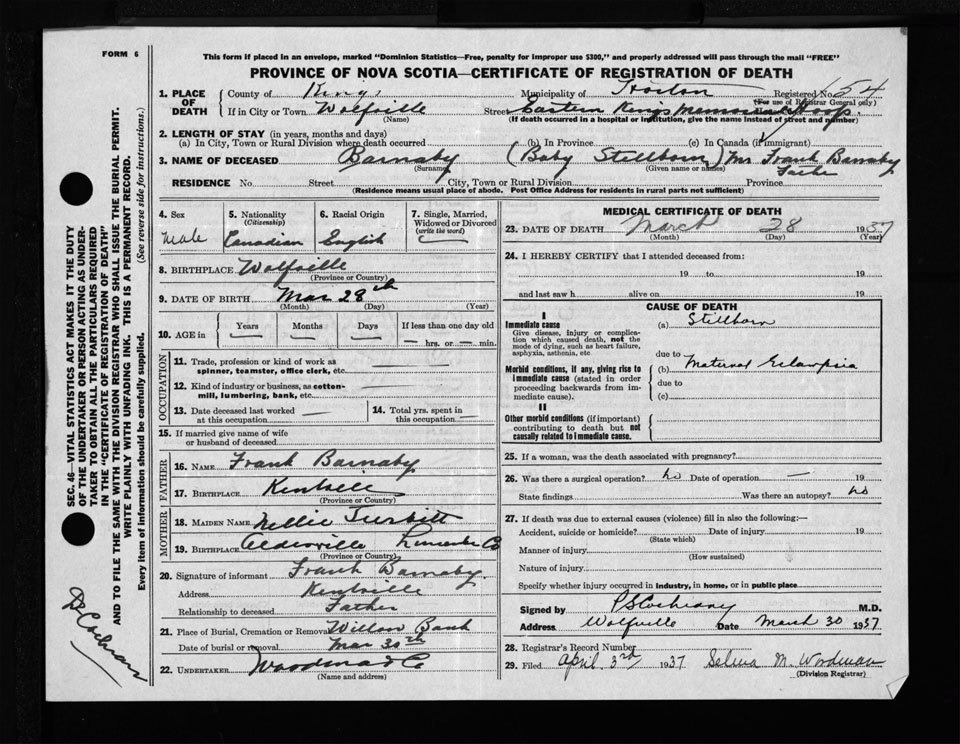 FORM 6
This form if placed in an envelope, marked "Dominion Statistics—Free, penalty for improper use $300," and properly addressed will pass through the mail "FREE"
PROVINCE OF NOVA SCOTIA—CERTIFICATE OF REGISTRATION OF DEATH
1. PLACE OF DEATH
County of Kings Municipality of Horton Registered No. 54
(For use of Registrar General only)
If in City or Town Wolfville Street Eastern Kings Memorial Hosp.
(Name) (If death occurred in a hospital or institution, give the name instead of street and number)
2. LENGTH OF STAY (in years, months and days)
(a) In City, Town or Rural Division where death occurred (b) In Province (c) In Canada (if immigrant)
3. NAME OF DECEASED Barnaby (Baby Stillborn) Mr Frank Barnaby
(Surname) (Given name or names) Father
RESIDENCE No. Street City, Town or Rural Division Province
(Residence means usual place of abode. Post Office Address for residents in rural parts not sufficient)
SEC. 46—VITAL STATISTICS ACT MAKES IT THE DUTY
OF THE UNDERTAKER OR PERSON ACTING AS UNDER-
TAKER TO OBTAIN ALL THE PARTICULARS REQUIRED
IN THE "CERTIFICATE OF REGISTRATION OF DEATH"
AND TO FILE THE SAME WITH THE DIVISION REGISTRAR WHO SHALL ISSUE THE BURIAL PERMIT.
WRITE PLAINLY WITH UNFADING INK. THIS IS A PERMANENT RECORD.
Every item of information should be carefully supplied. (See reverse side for instructions.)
Dr Cochrane
4. Sex
male
5. Nationality
(Citizenship)
Canadian
6. Racial Origin
English
7. Single, Married,
Widowed or Divorced
(write the word)
—
8. BIRTHPLACE Wolfville
(Province or Country)
9. DATE OF BIRTH Mar 28th
(Month) (Day) (Year)
10. AGE in
Years Months Days If less than one day old
— — — — hrs. or — min.
OCCUPATION
11. Trade, profession or kind of work as
spinner, teamster, office clerk, etc.
12. Kind of industry or business, as cotton-
mill, lumbering, bank, etc.
13. Date deceased last worked
at this occupation —
14. Total yrs. spent in
this occupation —
15. If married give name of wife
or husband of deceased
FATHER
16. NAME Frank Barnaby
17. BIRTHPLACE Kentville
(Province or Country)
MOTHER
18. MAIDEN NAME Nellie
19. BIRTHPLACE Lunenburg Co
(Province or Country)
20. Signature of informant Frank Barnaby.
Address Kentville
Relationship to deceased Father
21. Place of Burial, Cremation or Removal Willow Bank
Date of burial or removal Mar 30th
22. UNDERTAKER Woodman & Co
(Name and address)
MEDICAL CERTIFICATE OF DEATH
23. DATE OF DEATH March 28 1937
(Month) (Day) (Year)
24. I HEREBY CERTIFY that I attended deceased from:
19 to 19
and last saw h alive on 19
CAUSE OF DEATH
I
Immediate cause
Give disease, injury or complica-
tion which caused death, not the
mode of dying, such as heart failure,
asphyxia, asthenia, etc.
(a) Stillborn
due to
Morbid conditions, if any, giving rise to
immediate cause (stated in order
proceeding backwards from im-
mediate cause).
(b) Maternal Eclampsia
due to
(c)
II
Other morbid conditions (if important)
contributing to death but not
causally related to immediate cause.
25. If a woman, was the death associated with pregnancy?
26. Was there a surgical operation? no Date of operation — 19
State findings Was there an autopsy? no
27. If death was due to external causes (violence) fill in also the following:—
Accident, suicide or homicide? Date of injury 19
(State which)
Manner of injury
(How sustained)
Nature of injury
Specify whether injury occurred in industry, in home, or in public place
Signed by P S Cochrane M.D.
Address Wolfville Date March 30 1937
28. Registrar's Record Number
29. Filed April 3rd 1937 Selina M. Woodman
(Division Registrar)